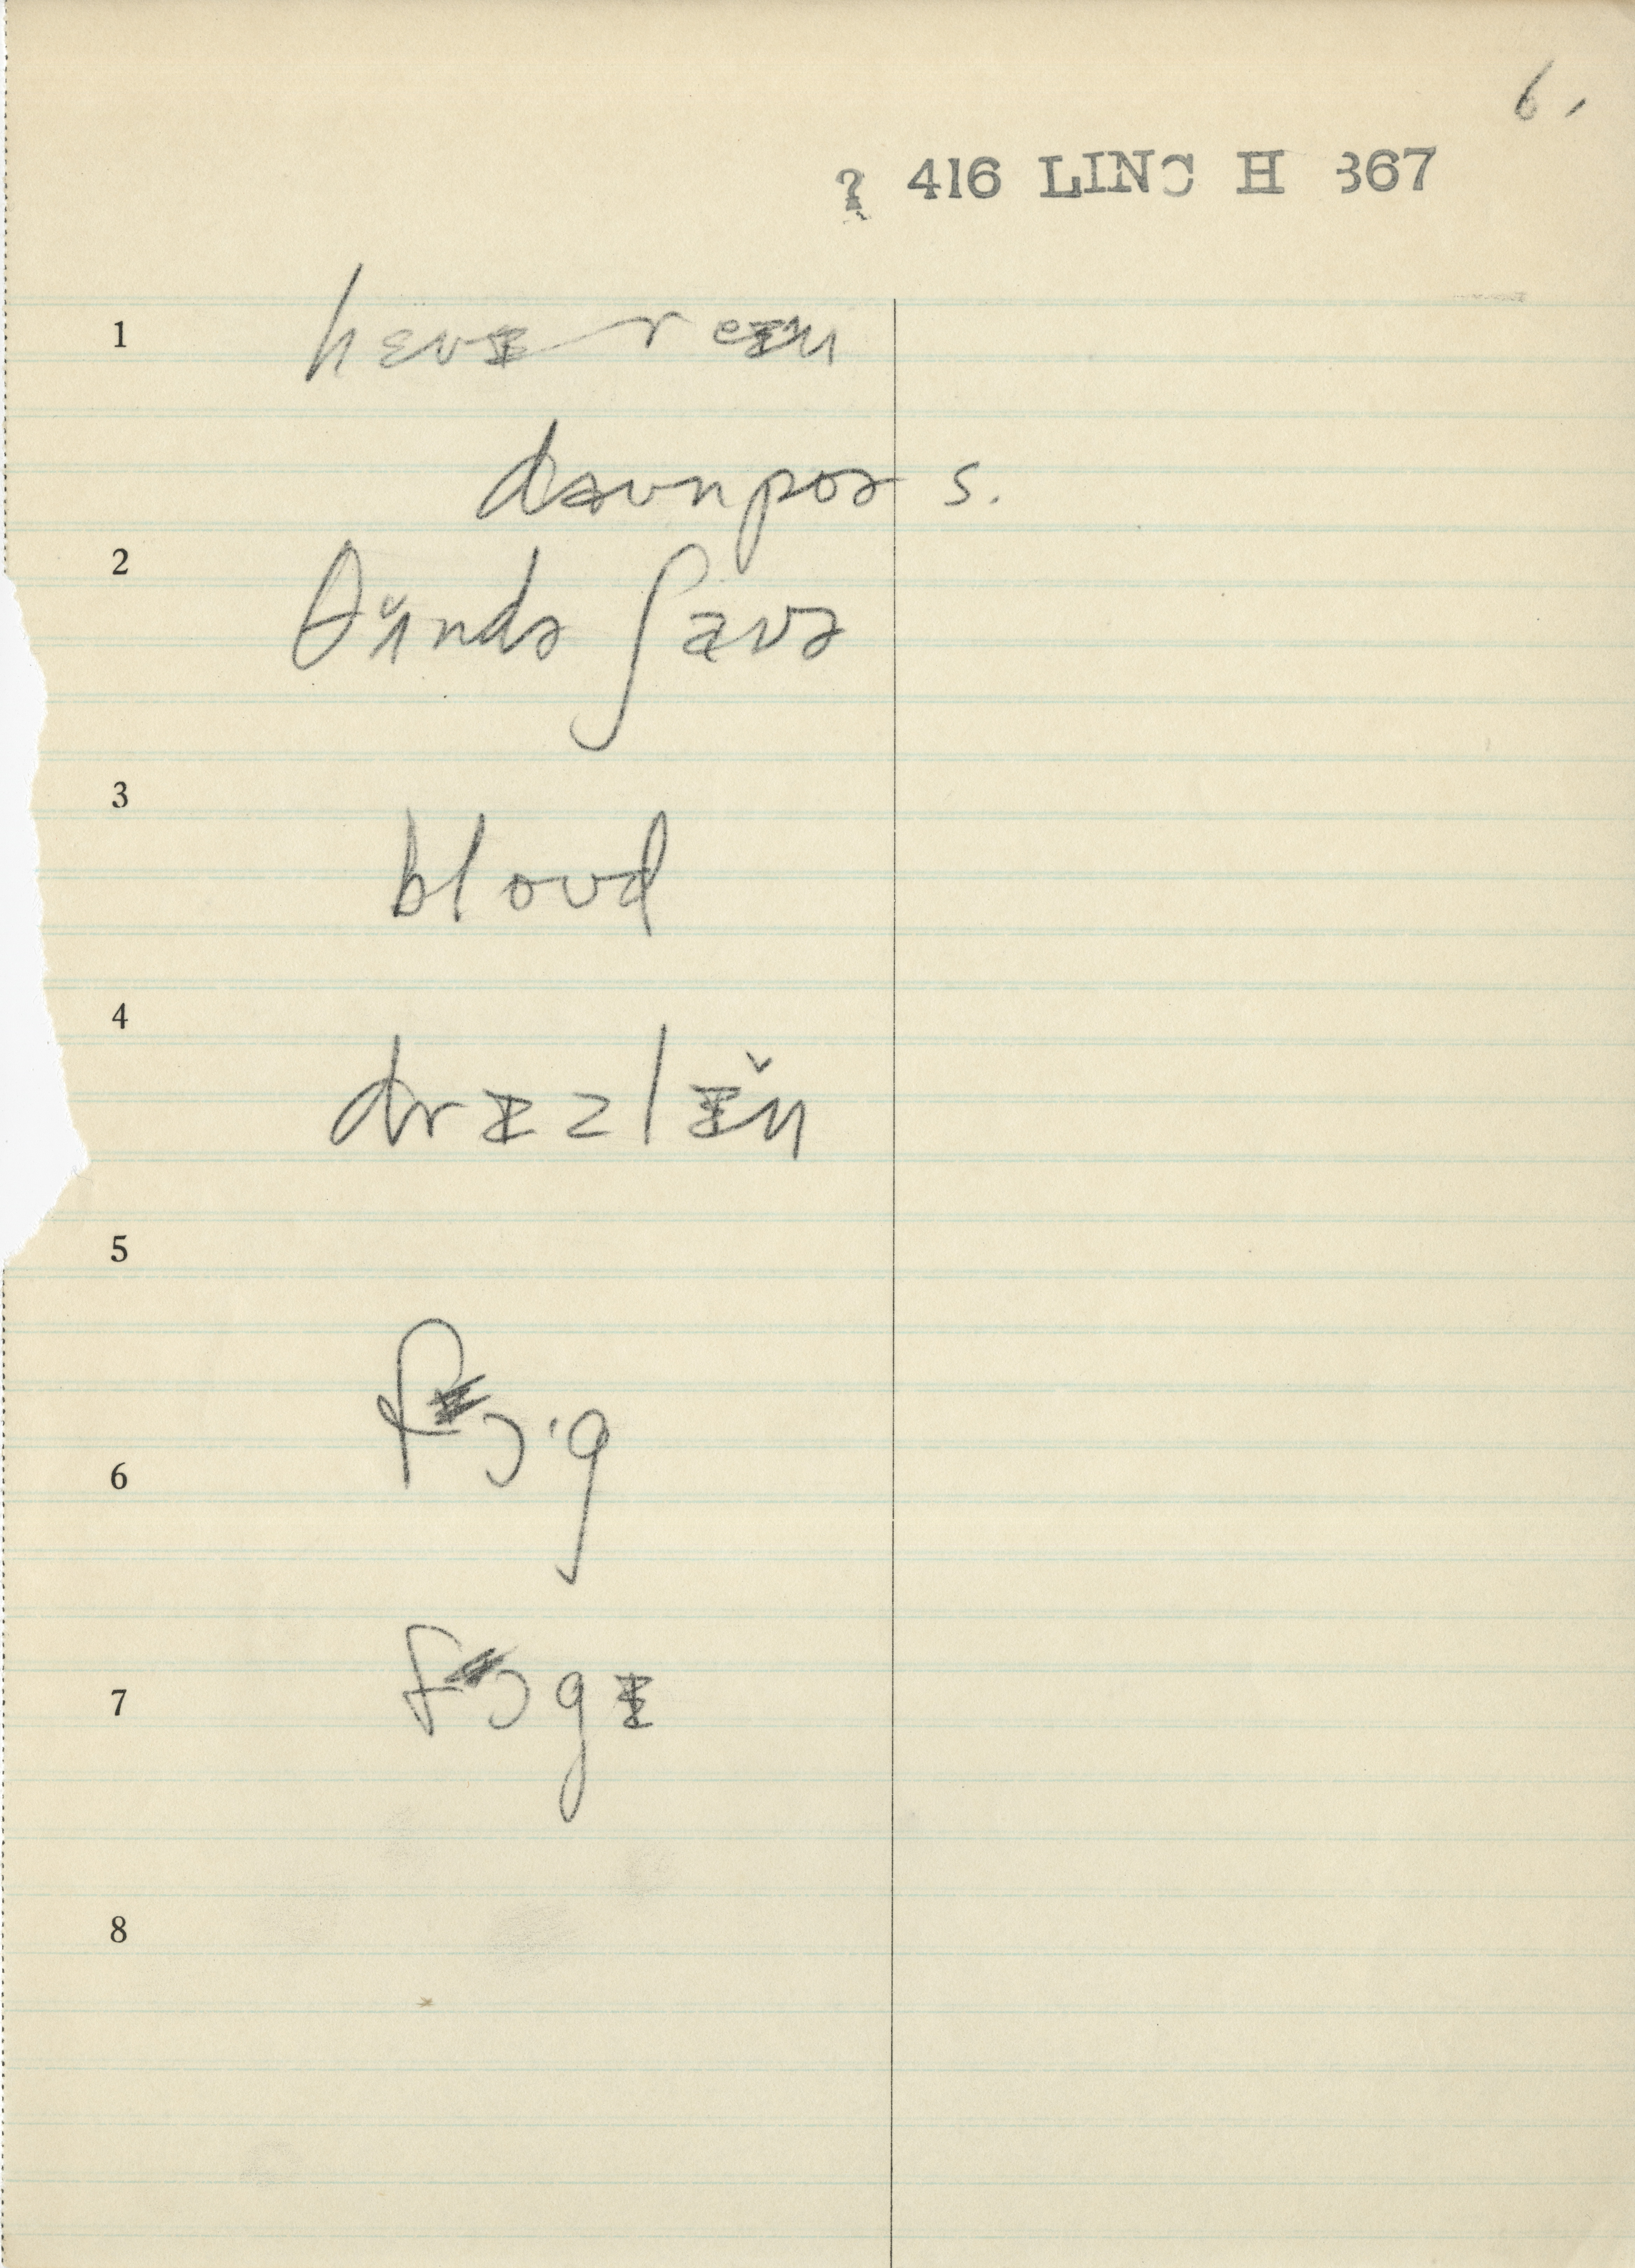 6.
? 416 LINC H 367
1 hɛvɪ reɪn
daʊnpoə s.
2 θʌ̌ndə ʃaʊə
3 bloʊd
4 drɪzlɪ̌n
5
6 fɔ·g
7 fɔgɪ
8